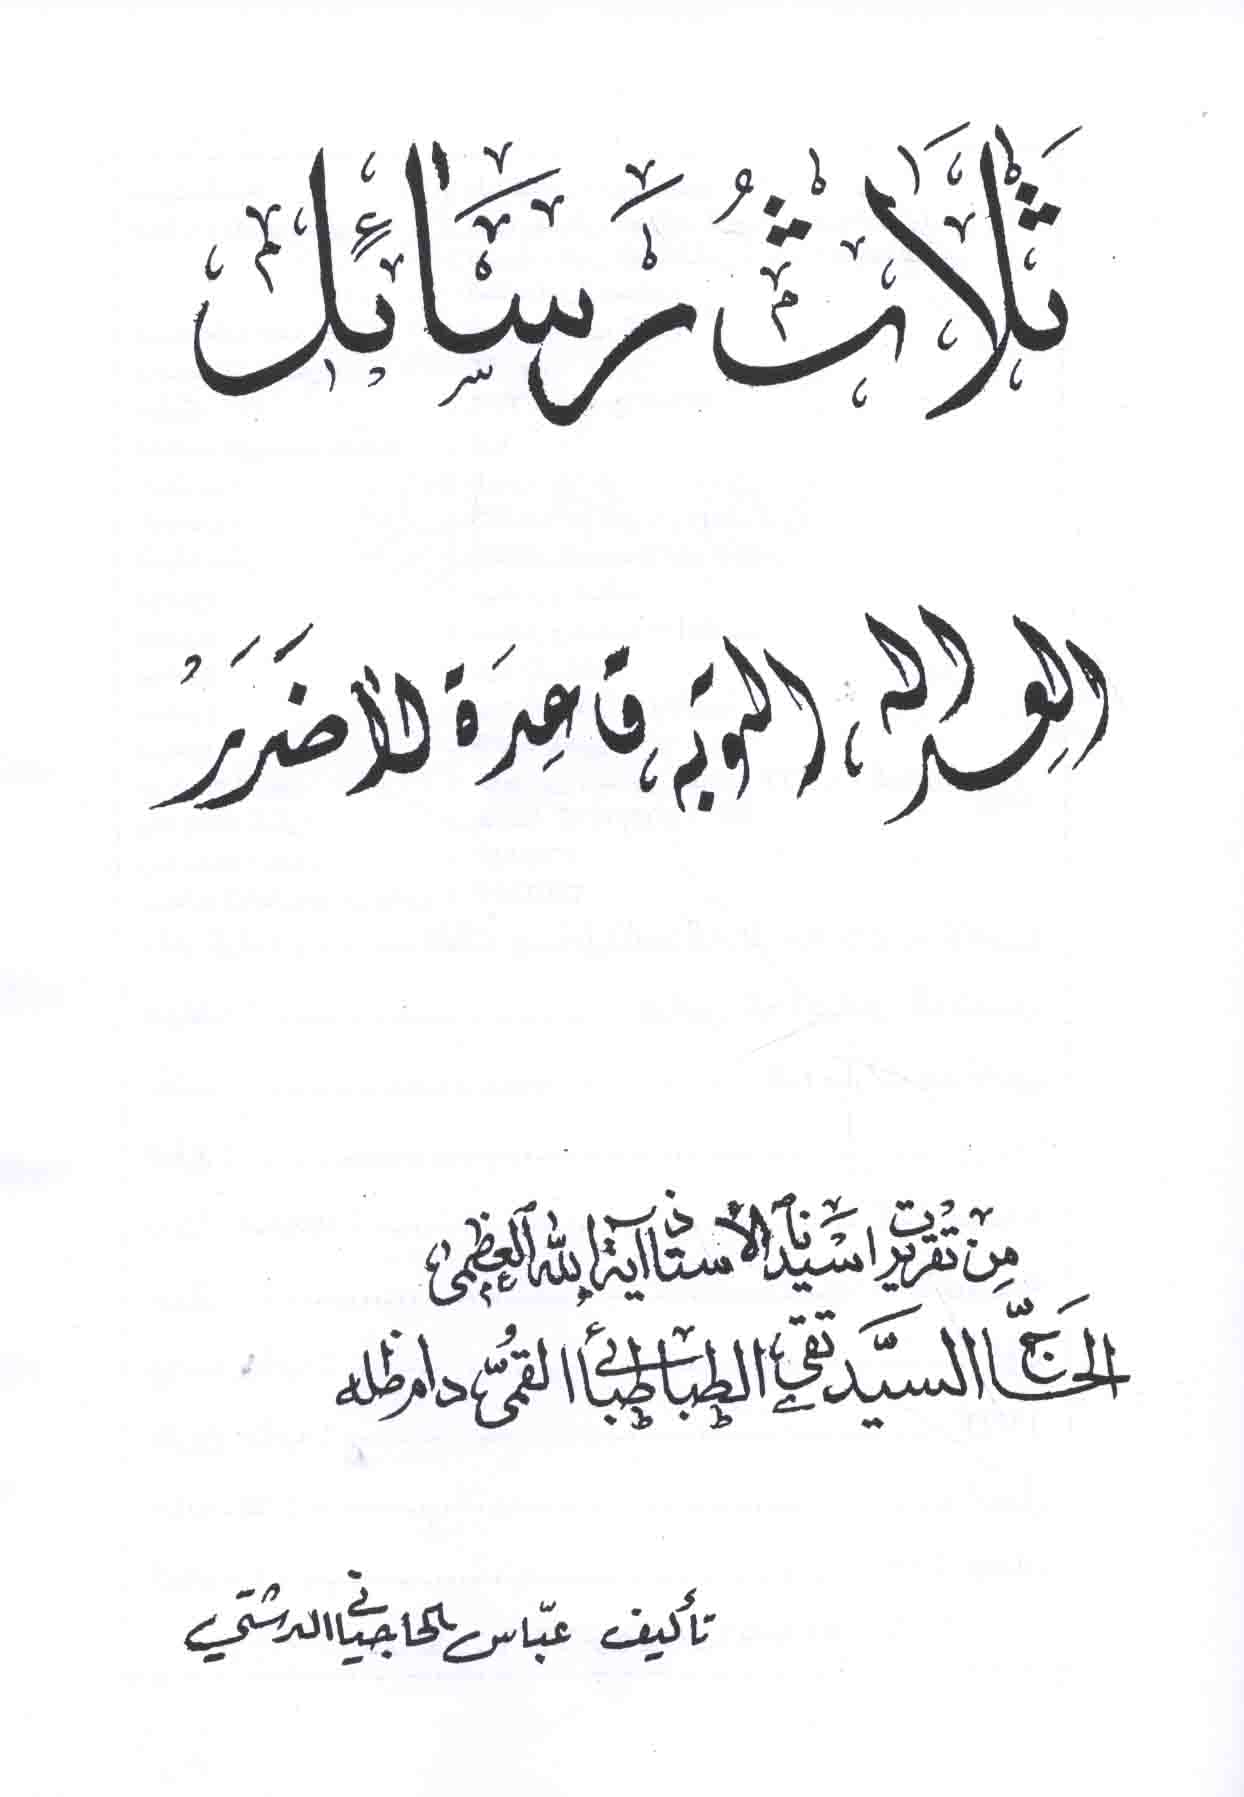 ثَلَاثُ رَسَائِل
العِدالة، التوبة، قَاعِدَة لاٰضَرَرُ
مِن تقريرات سيدنا الأستاذ آية الله العظمىٰ
الحَاجّ السيَّد تقي الطباطبائي القُمّي دام ظله
تأليف عبّاس الحاجياني الدشتي